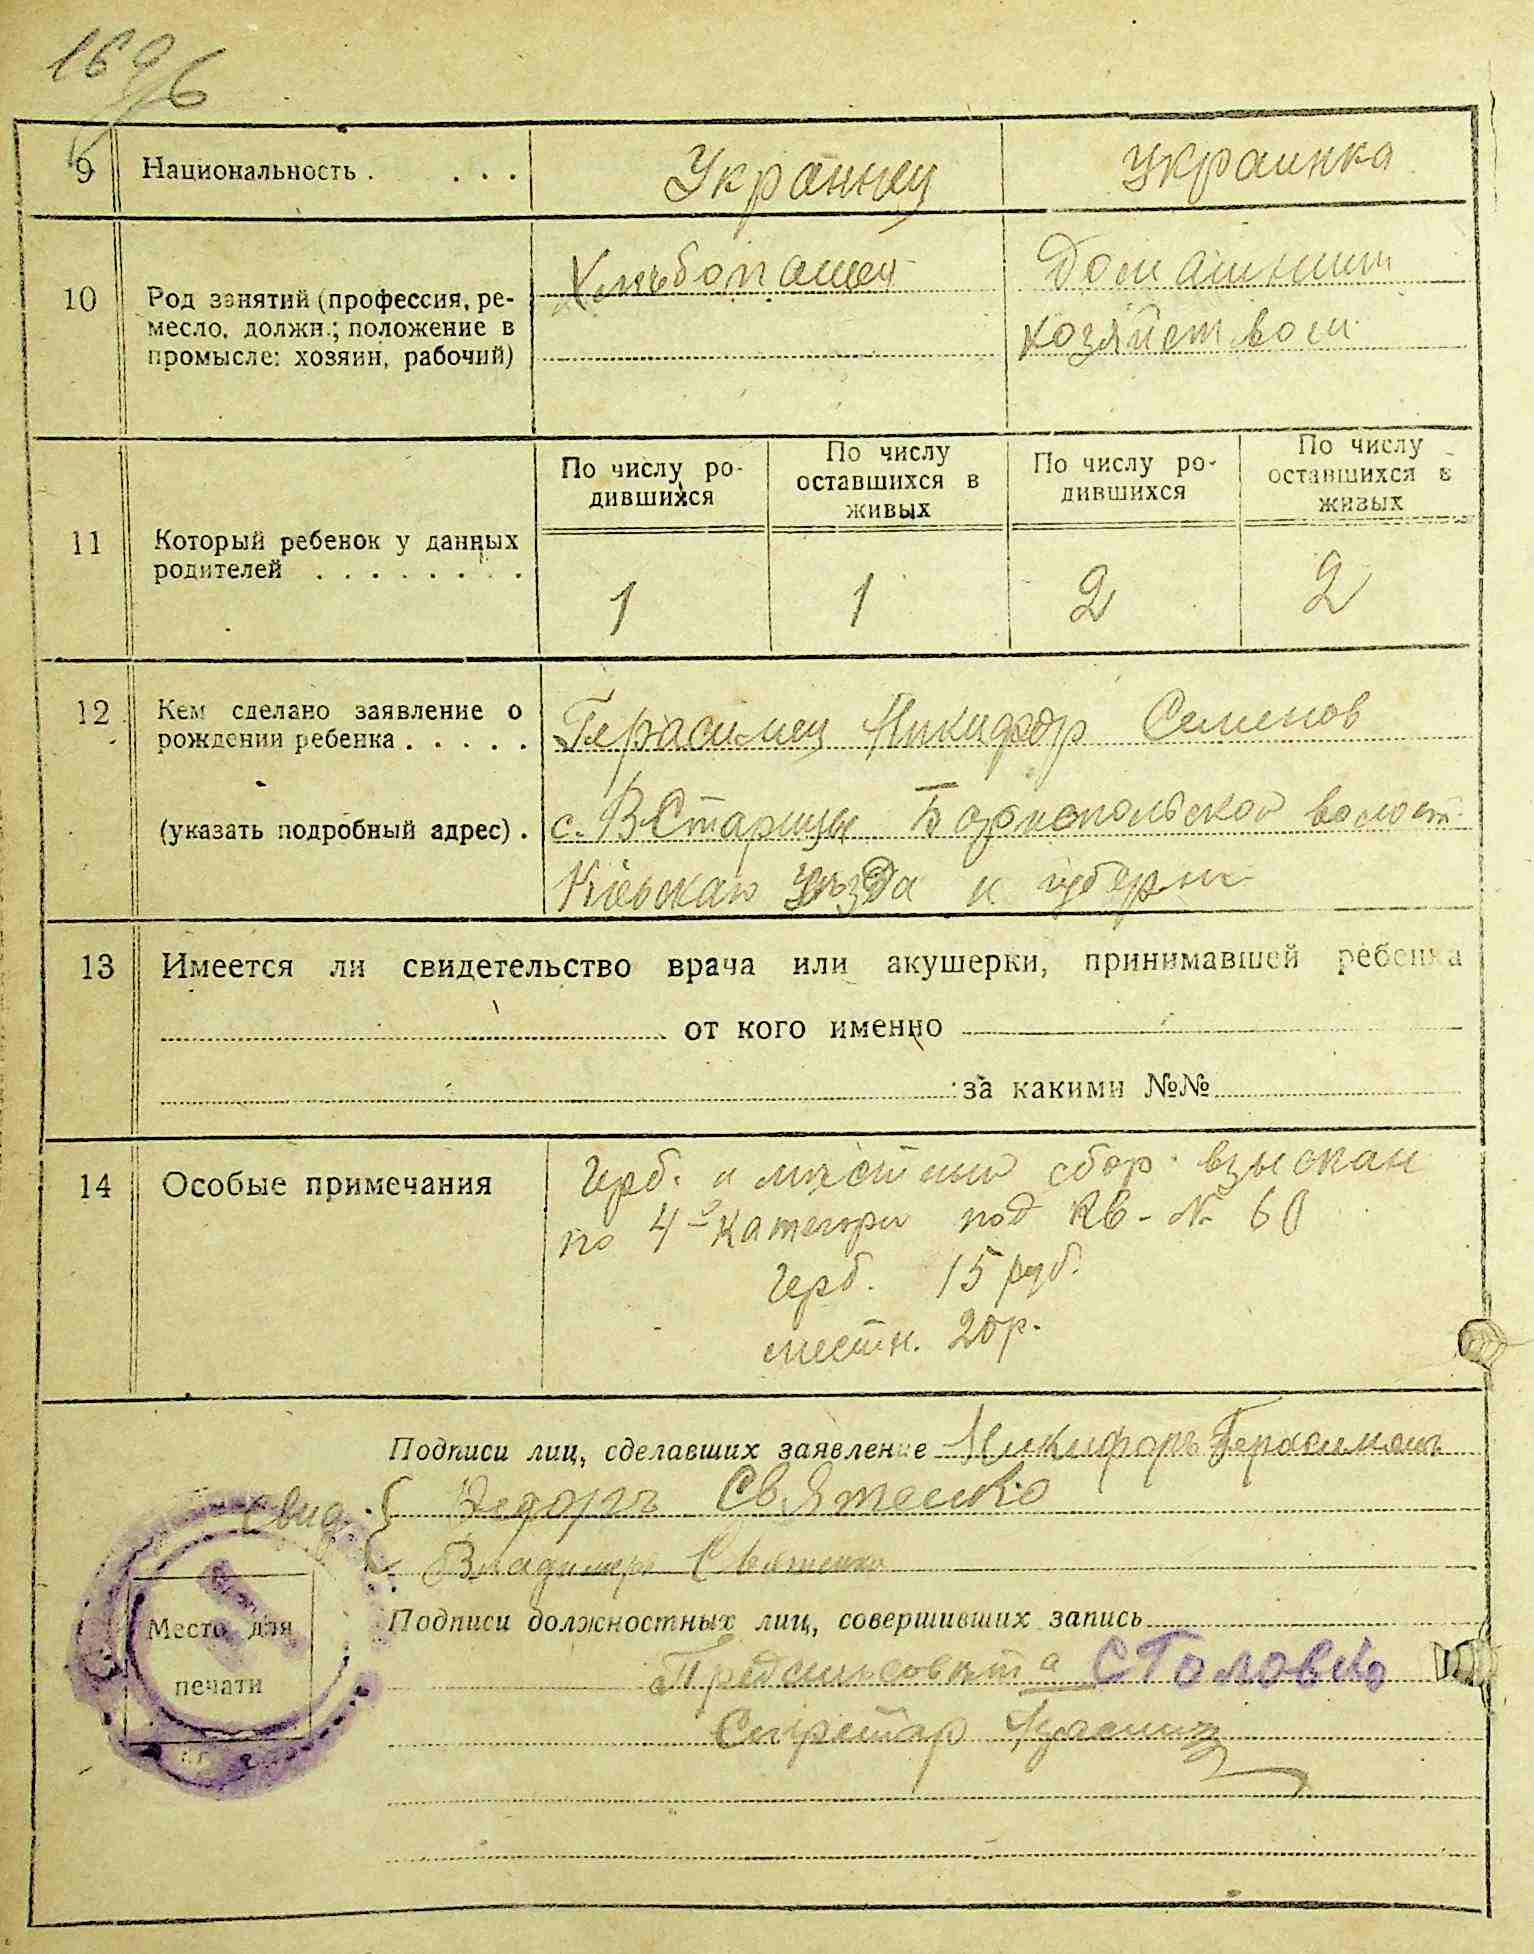 169
6
9 Национальность . . . . Украинец Украинка
10 Род занятий (профессия, ре-
месло, должн.; положение в
промысле: хозяин, рабочий)
Хлъбопашец Домашним
хозяйством
11 Который ребенок у данных
родителей . . . . . . . .
По числу ро-
дившихся
По числу
оставшихся в
живых
По числу ро-
дившихся
По числу
оставшихся в
живых
1 1 2 2
12 Кем сделано заявление о
рождении ребенка . . . . .
(указать подробный адрес) .
Герасимец Никифор Семенов
с. В Старицы волост
уъзда и губерни
13 Имеется ли свидетельство врача или акушерки, принимавшей ребенка
от кого именно
за какими №№
14 Особые примечания
Герб. и мъстный сбор взыскан
по 4й категори под кв. № 60
герб. 15 руб.
местн. 20 р.
Подписи лиц, сделавших заявление Никифоръ
Свид. { Федоръ Святенко
Владимеръ Святенко
Место для
печати
Подписи должностных лиц, совершивших запись
Предсильсовъта Столовко
Сикретар